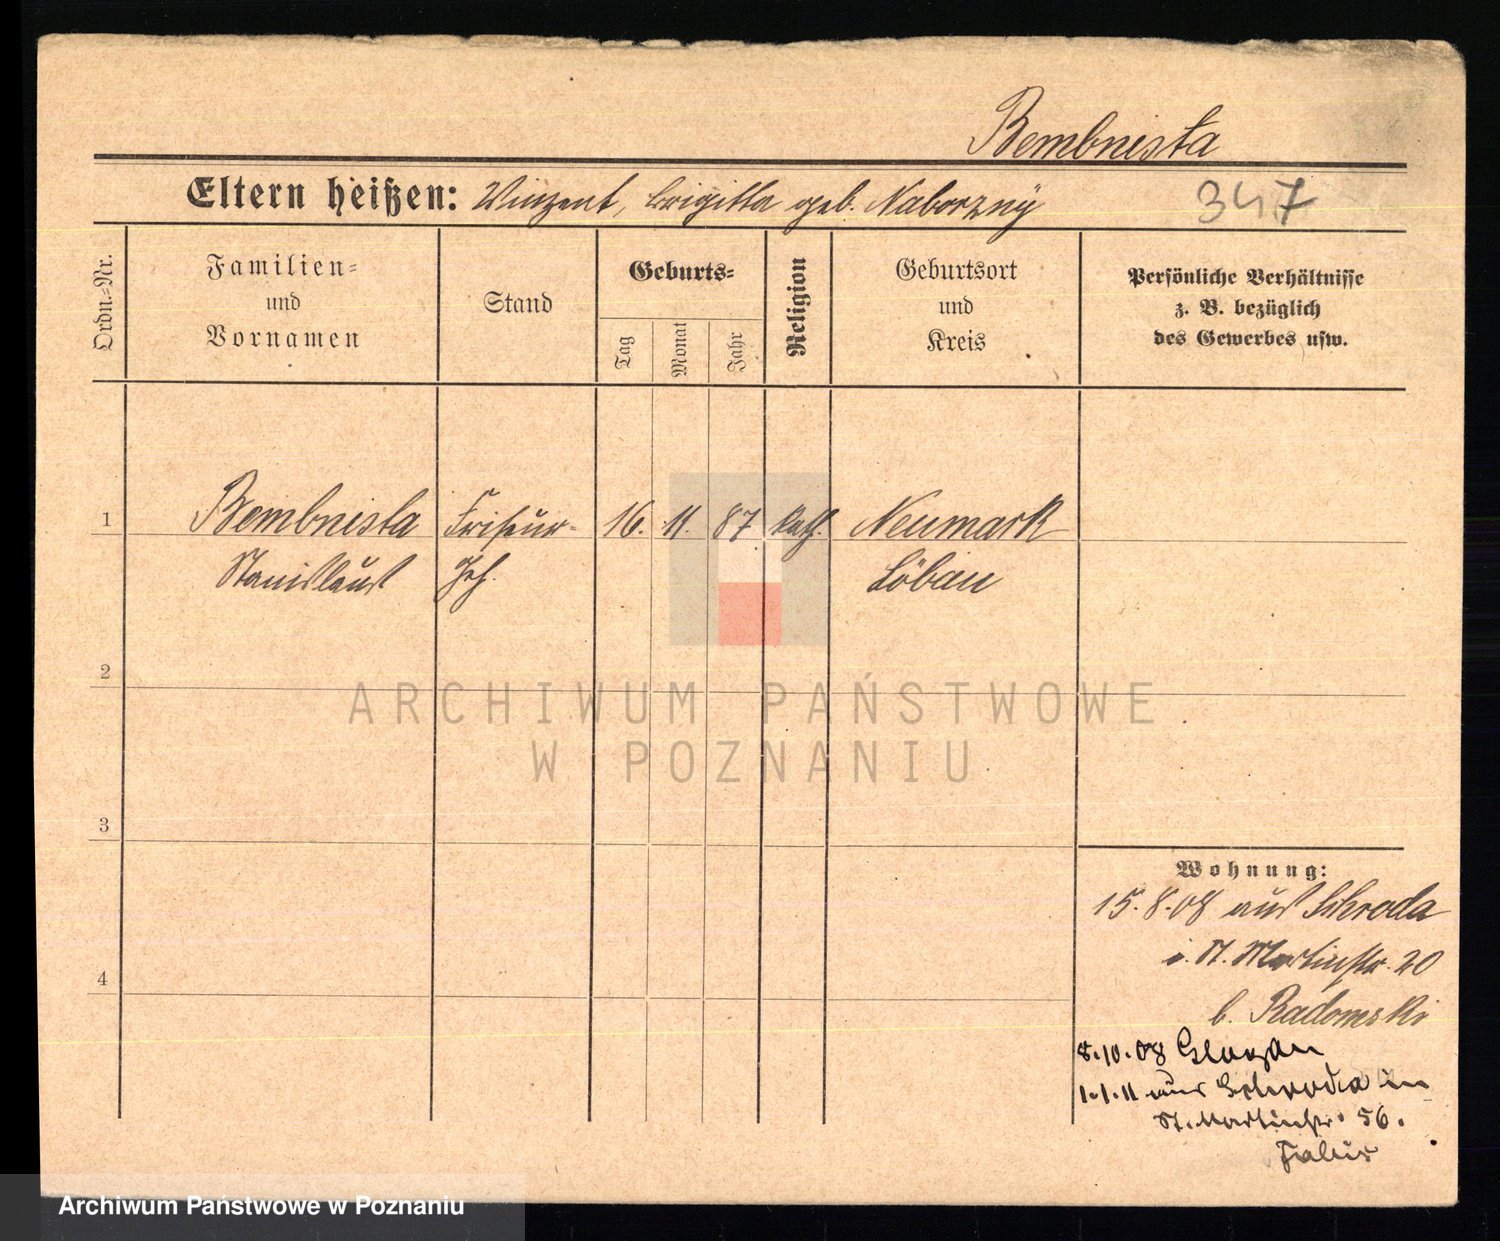 Bembnista
Eltern heißen: Vinzent, Brigitta geb. Naborzny
347
Ordn.-Nr.
Familien-
und
Vornamen
Stand
Geburts-
Tag
Monat
Jahr
Religion
Geburtsort
und
Kreis
Persönliche Verhältnisse
z. B. bezüglich
des Gewerbes usw.
1 Bembnista Friseur- 16. 11. 87 kath. Neumark
Stanislaus Geh. Löbau
2
3
4
ARCHIWUM PAŃSTWOWE
W POZNANIU
Wohnung:
15.8.08 aus Schroda
i. St. Martinstr. 20
b. Radomski
8.10.08 Glogau
1.1.11 aus Schroda in
St. Martinstr. 56.
Archiwum Państwowe w Poznaniu